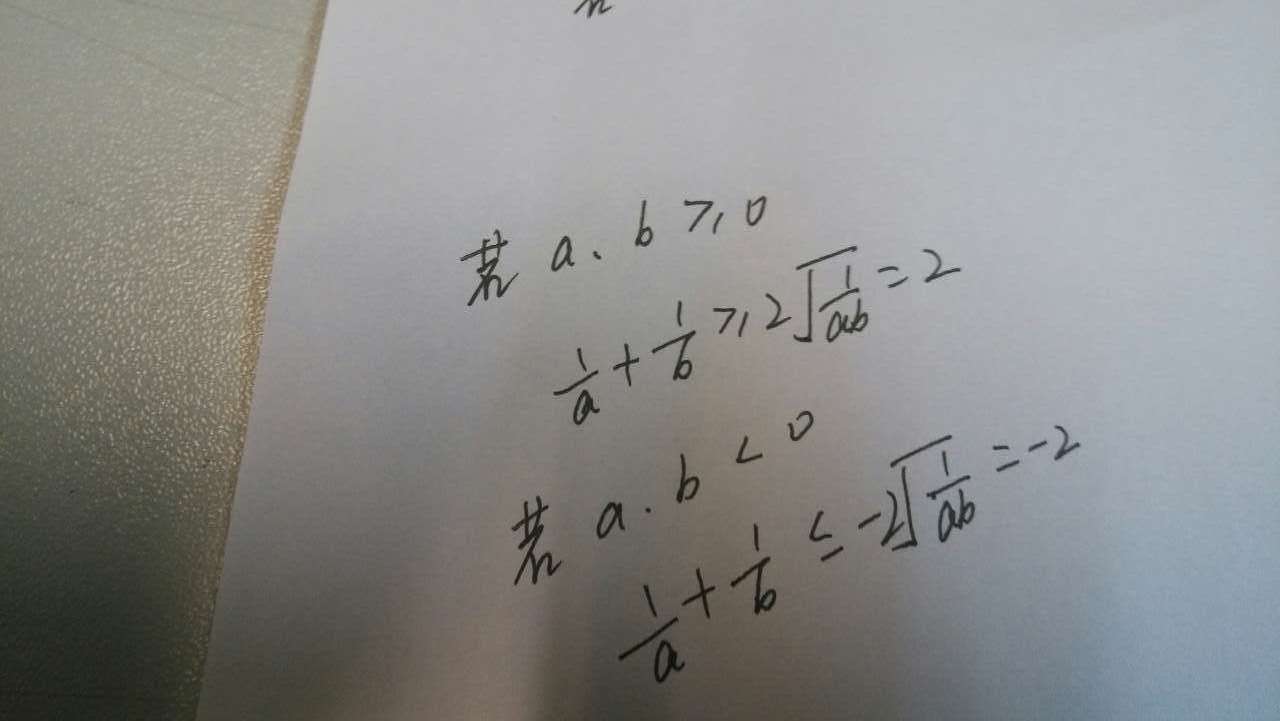 若 a、b ≥ 0
1/a + 1/b ≥ 2√(1/ab) = 2
若 a、b < 0
1/a + 1/b ≤ -2√(1/ab) = -2